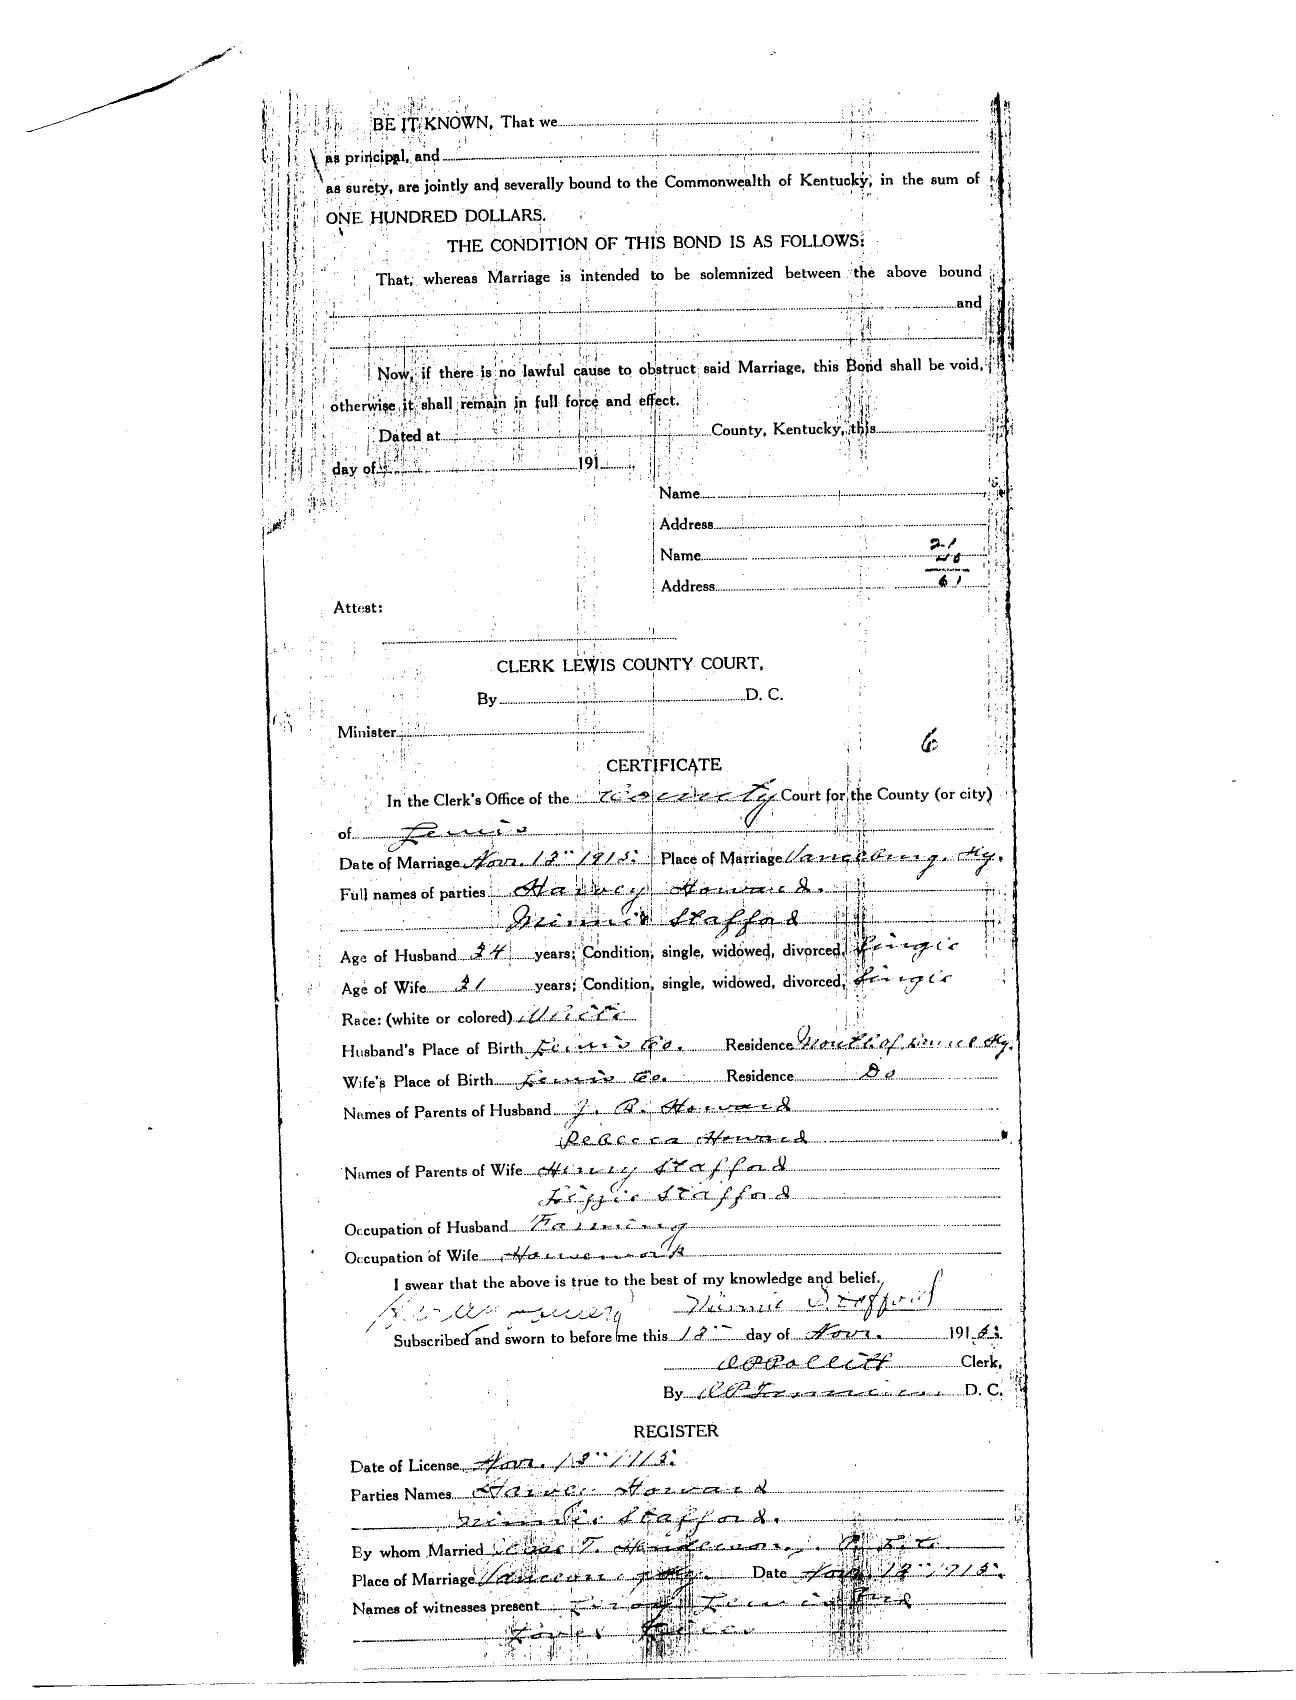 BE IT KNOWN, That we
as principal, and
as surety, are jointly and severally bound to the Commonwealth of Kentucky, in the sum of
ONE HUNDRED DOLLARS.
THE CONDITION OF THIS BOND IS AS FOLLOWS:
That, whereas Marriage is intended to be solemnized between the above bound
and
Now, if there is no lawful cause to obstruct said Marriage, this Bond shall be void,
otherwise it shall remain in full force and effect.
Dated at County, Kentucky, this
day of 191
Name
Address
21
Name 40
Address 61
Attest:
CLERK LEWIS COUNTY COURT,
By D. C.
Minister
6
CERTIFICATE
In the Clerk's Office of the County Court for the County (or city)
of Lewis
Date of Marriage Nov. 13" 1915. Place of Marriage Vanceburg, Ky.
Full names of parties Harvey Howard.
Minnie Stafford
Age of Husband 24 years; Condition, single, widowed, divorced, Single
Age of Wife 21 years; Condition, single, widowed, divorced, Single
Race: (white or colored) White
Husband's Place of Birth Lewis Co. Residence Mouth of Laurel Ky.
Wife's Place of Birth Lewis Co. Residence Do
Names of Parents of Husband J. B. Howard
Rebecca Howard
Names of Parents of Wife Henry Stafford
Lizzie Stafford
Occupation of Husband Farming
Occupation of Wife Housework
I swear that the above is true to the best of my knowledge and belief.
Minnie Stafford
Subscribed and sworn to before me this 13" day of Nov. 1915.
O P Pollitt Clerk,
By D. C.
REGISTER
Date of License Nov. 13" 1915.
Parties Names Harvey Howard
Minnie Stafford.
By whom Married T. Henderson,
Place of Marriage Vanceburg Ky. Date Nov. 13" 1915.
Names of witnesses present